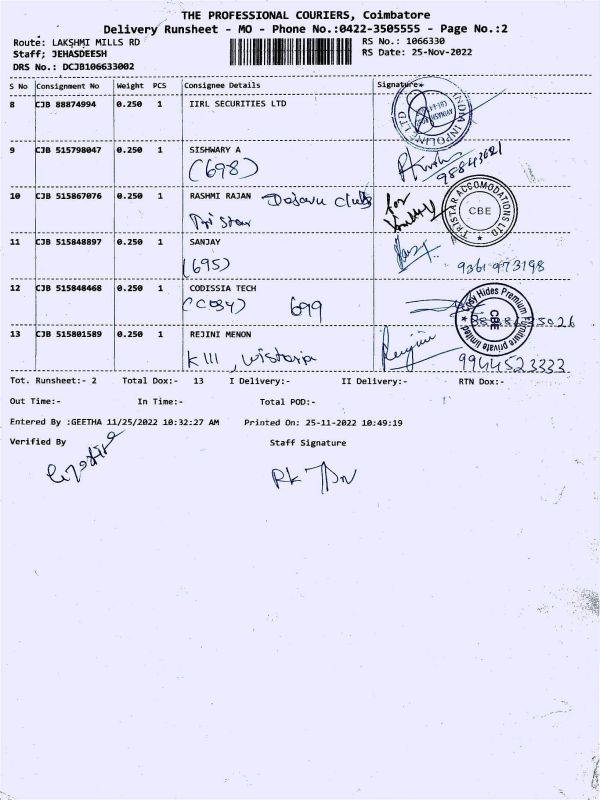 THE PROFESSIONAL COURIERS, Coimbatore
Delivery Runsheet - MO - Phone No.:0422-3505555 - Page No.:2
Route: LAKSHMI MILLS RD RS No.: 1066330
Staff; JEHASDEESH RS Date: 25-Nov-2022
DRS No.: DCJB106633002
S No Consignment No Weight PCS Consignee Details Signature
8 CJB 88874994 0.250 1 IIRL SECURITIES LTD
INDIA INFOLINE LTD
9 CJB 515798047 0.250 1 SISHWARY A
(698)
10 CJB 515867076 0.250 1 RASHMI RAJAN Dejavu club for
Tristar
TRISTAR ACCOMODATIONS LTD.
CBE
11 CJB 515848897 0.250 1 SANJAY
(695) 9361 973198
12 CJB 515848468 0.250 1 CODISSIA TECH
699
Hides Premium Furniture private limited
CBE
13 CJB 515801589 0.250 1 REJINI MENON Rejini
K 111, wistoria 9944523333
Tot. Runsheet:- 2 Total Dox:- 13 I Delivery:- II Delivery:- RTN Dox:-
Out Time:- In Time:- Total POD:-
Entered By :GEETHA 11/25/2022 10:32:27 AM Printed On: 25-11-2022 10:49:19
Verified By Staff Signature